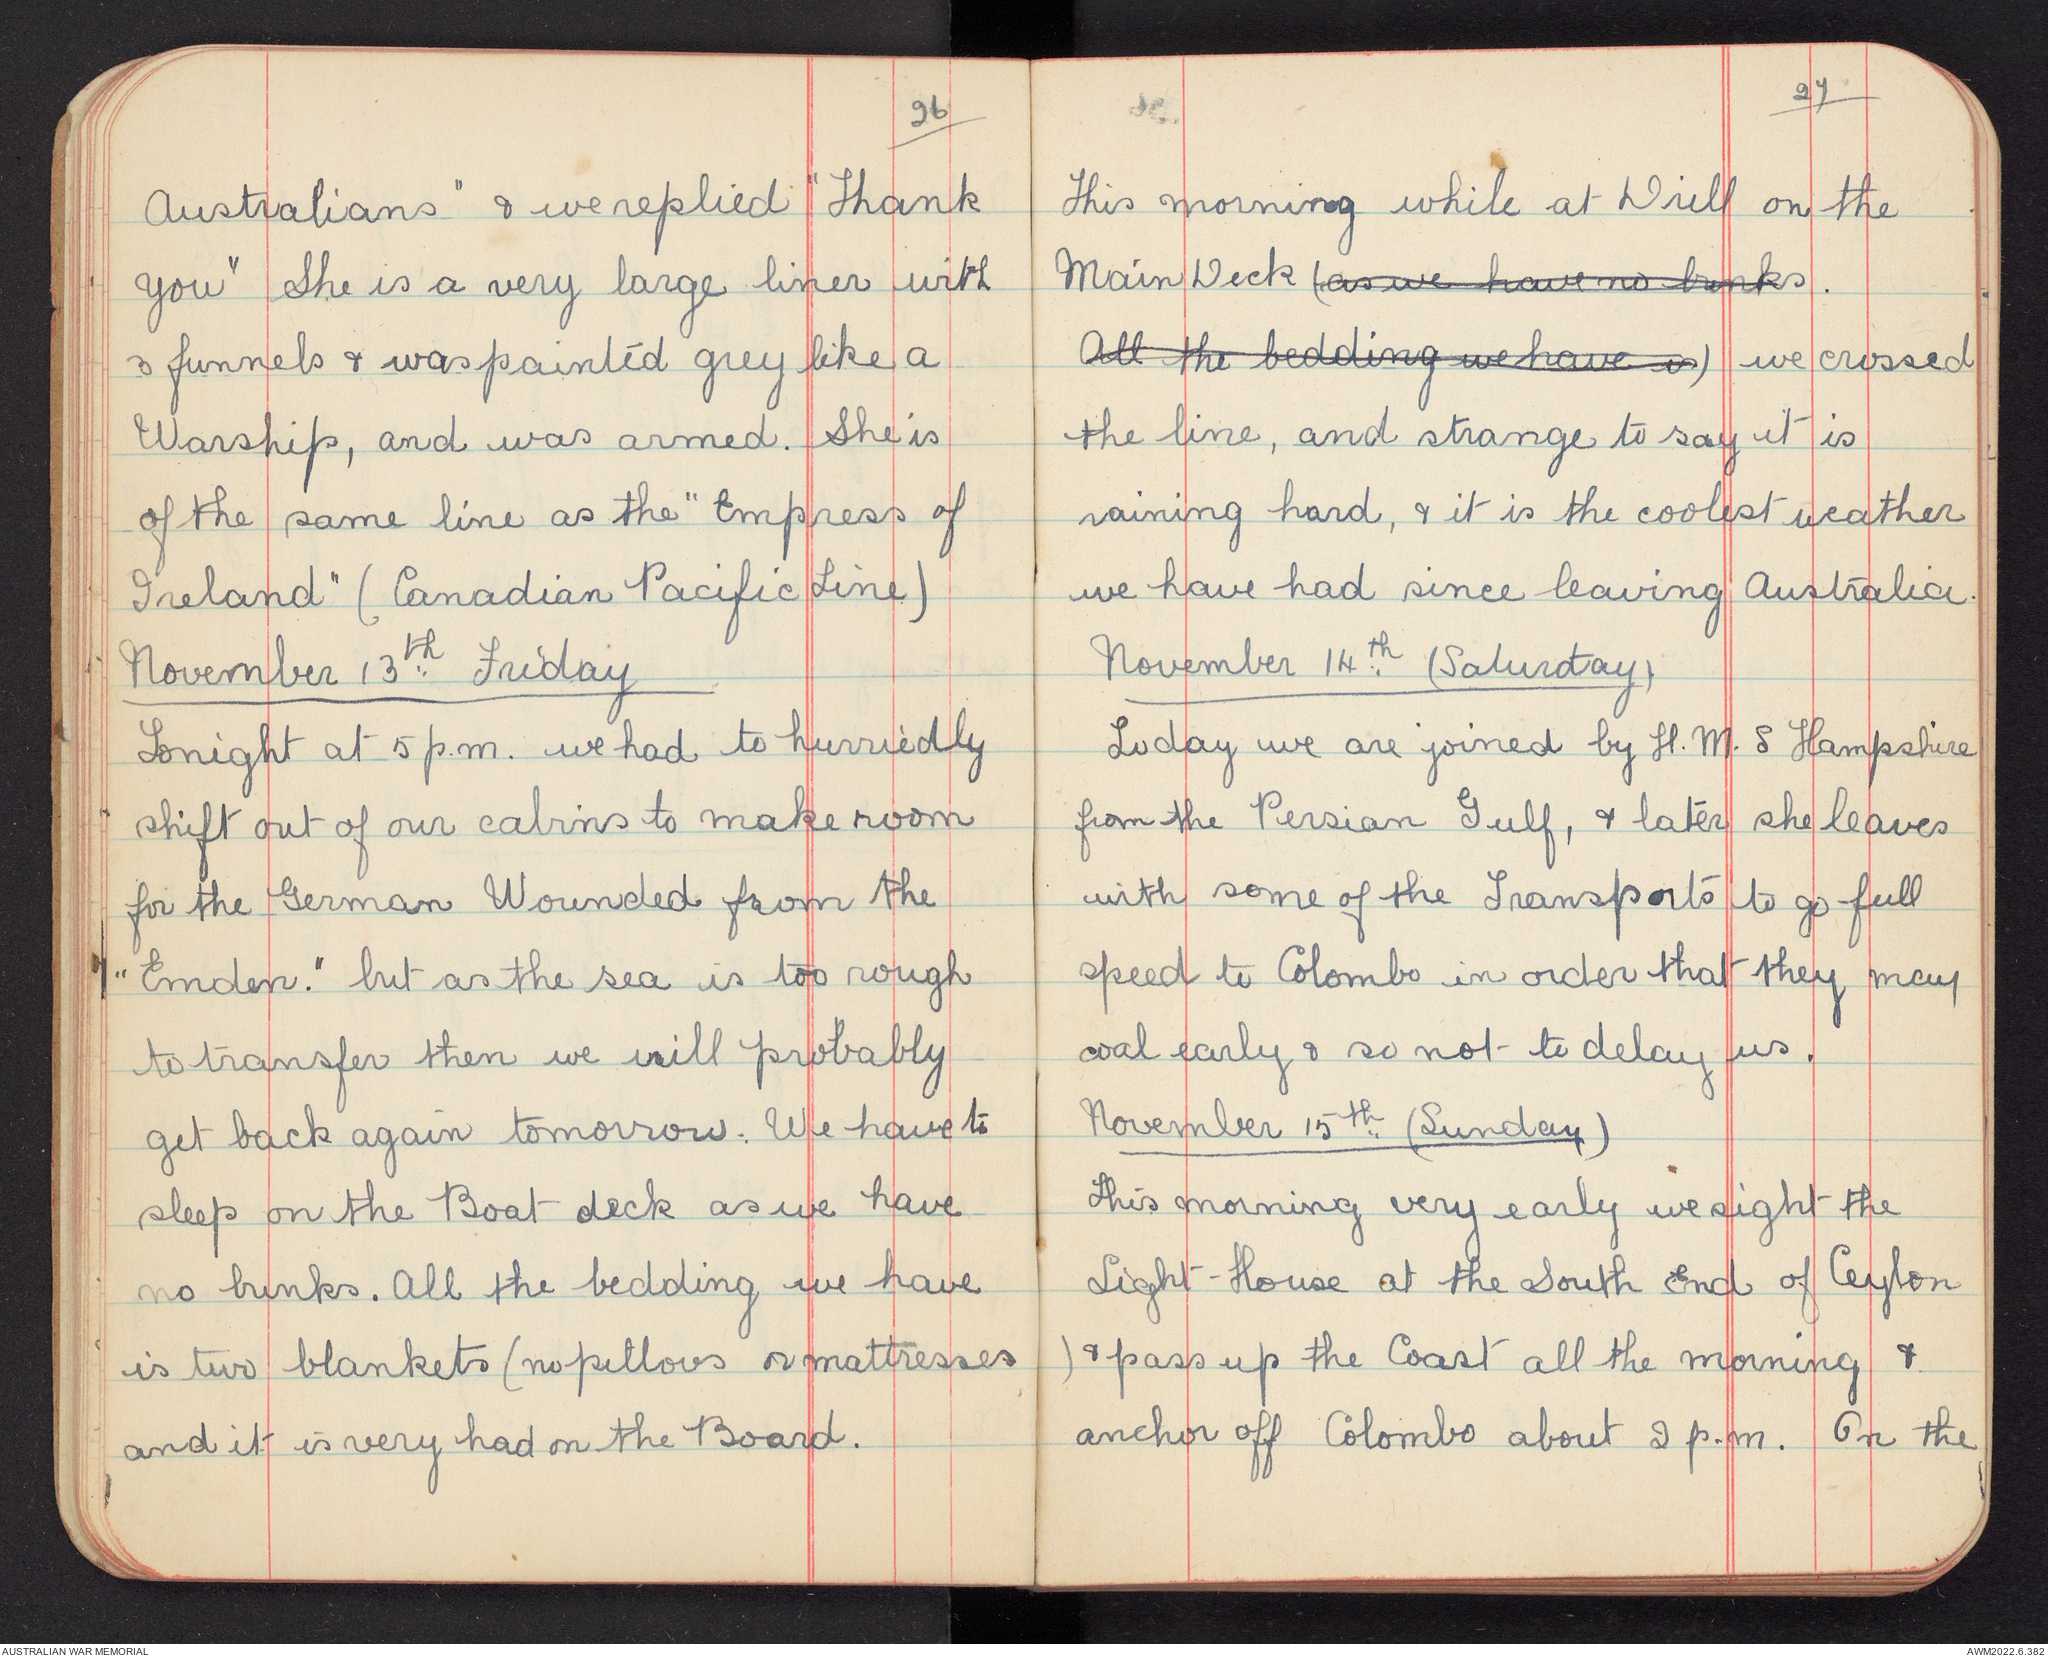 26
Australians" & we replied "Thank
you" She is a very large liner with
3 funnels & was painted grey like a
Warship, and was armed. She is
of the same line as the "Empress of
Ireland" (Canadian Pacific Line)
November 13th Friday
Tonight at 5 p.m. we had to hurriedly
shift out of our cabins to make room
for the German Wounded from the
"Emden." but as the sea is too rough
to transfer then we will probably
get back again tomorrow. We have to
sleep on the Boat deck as we have
no bunks. All the bedding we have
is two blankets (no pillows or mattresses
and it is very had on the Board.
27
This morning while at Drill on the
Main Deck (as we have no bunks.
All the bedding we have is) we crossed
the line, and strange to say it is
raining hard, & it is the coolest weather
we have had since leaving Australia.
November 14th (Saturday)
Today we are joined by H.M.S Hampshire
from the Persian Gulf, & later she leaves
with some of the Transports to go full
speed to Colombo in order that they may
coal early & so not to delay us.
November 15th (Sunday)
This morning very early we sight the
Light-House at the South End of Ceylon
) & pass up the Coast all the morning &
anchor off Colombo about 2 p.m. On the
AUSTRALIAN WAR MEMORIAL
AWM2022.6.382